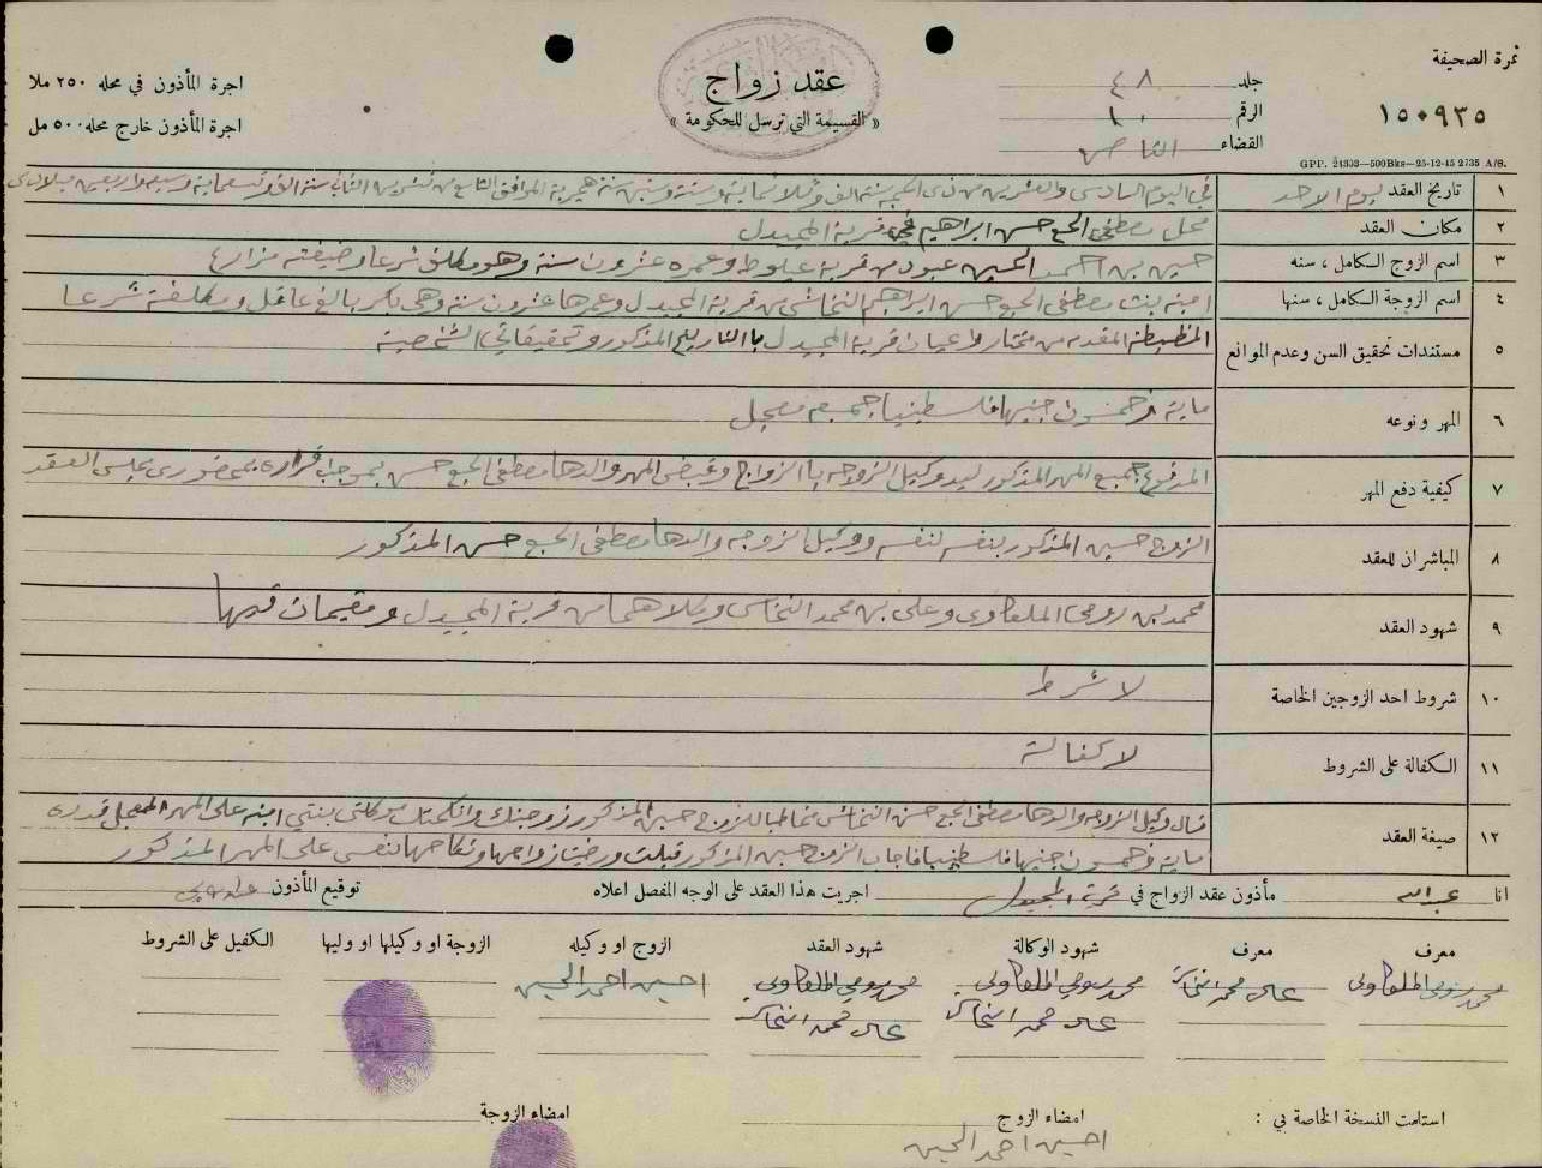 نمرة الصحيفة
١٥٠٩٣٥
GPP. 24353—500 Bks—23-12-45 2735 A/S.
جلد ٤٨
الرقم ١٠
القضاء الناصره
عقد زواج
« القسيمة التي ترسل للحكومة »
اجرة المأذون في محله ٢٥٠ ملا
اجرة المأذون خارج محله ٥٠٠ مل
١ تاريخ العقد يوم الاحد في اليوم السادس والعشرين من ذي الحجه سنة الف وثلاثماية وستة وستين سنة هجرية الموافق التاسع من تشرين الثاني سنة الف وتسعماية وسبعه واربعين ميلادي
٢ مكان العقد محل مصطفى الحج حسن ابراهيم في قرية المجيدل
٣ اسم الزوج الكامل ، سنه حسين بن احمد الحسين عبود من قرية عيلوط وعمره عشرون سنة وهو مكلف شرعا وضيفته مزارع
٤ اسم الزوجة الكامل ، سنها امينه بنت مصطفى الحج حسن ابراهيم النخاش من قرية المجيدل وعمرها عشرون سنة وهي بكر بالغ عاقل ومكلفة شرعا
٥ مستندات تحقيق السن وعدم الموانع المظبطه المقدمه من مختار واعيان قرية المجيدل باالتاريخ المذكور وتحقيقاتي الشخصية
٦ المهر ونوعه ماية وخمسون جنيها فلسطينيا جميعه معجل
٧ كيفية دفع المهر المدفوع جميع المهر المذكور ليد وكيل الزوجه باالزواج وقبض المهر والدها مصطفى الحج حسن بموجب قراره بحضوري بمجلس العقد
٨ المباشران للعقد الزوج حسين المذكور بنفسه لنفسه ووكيل الزوجه والدها مصطفى الحج حسن المذكور
٩ شهود العقد محمد بن رومي الملفاوي وعلي بن محمد النخاش وكلاهما من قرية المجيدل ومقيمان فيها
١٠ شروط احد الزوجين الخاصة لا شرط
١١ الكفالة على الشروط لا كفالة
١٢ صيغة العقد قال وكيل الزوجه والدها مصطفى الحج حسن النخاش مخاطبا للزوج حسين المذكور زوجتك وانكحتك موكلتي بنتي امينه على المهر المعجل قدره
ماية وخمسون جنيها فلسطينيا فاجاب الزوج حسين المذكور قبلت ورضيت زواجها ونكاحها لنفسي على المهر المذكور
انا عبدالله مأذون عقد الزواج في قرية المجيدل اجريت هذا العقد على الوجه المفصل اعلاه توقيع المأذون
معرف معرف شهود الوكالة شهود العقد الزوج او وكيله الزوجة او وكيلها او وليها الكفيل على الشروط
محمد رومي الملفاوي علي محمد النخاش محمد رومي الملفاوي محمد رومي الملفاوي احسين احمد الحسين
علي محمد النخاش علي محمد النخاش
استلمت النسخة الخاصة بي : امضاء الزوج امضاء الزوجة
احسين احمد الحسين